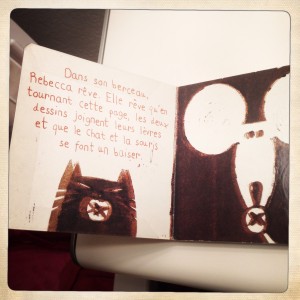 Dans son berceau,
Rebecca rêve. Elle rêve qu'en
tournant cette page, les deux
dessins joignent leurs lèvres
et que le Chat et la souris
se font un baiser.